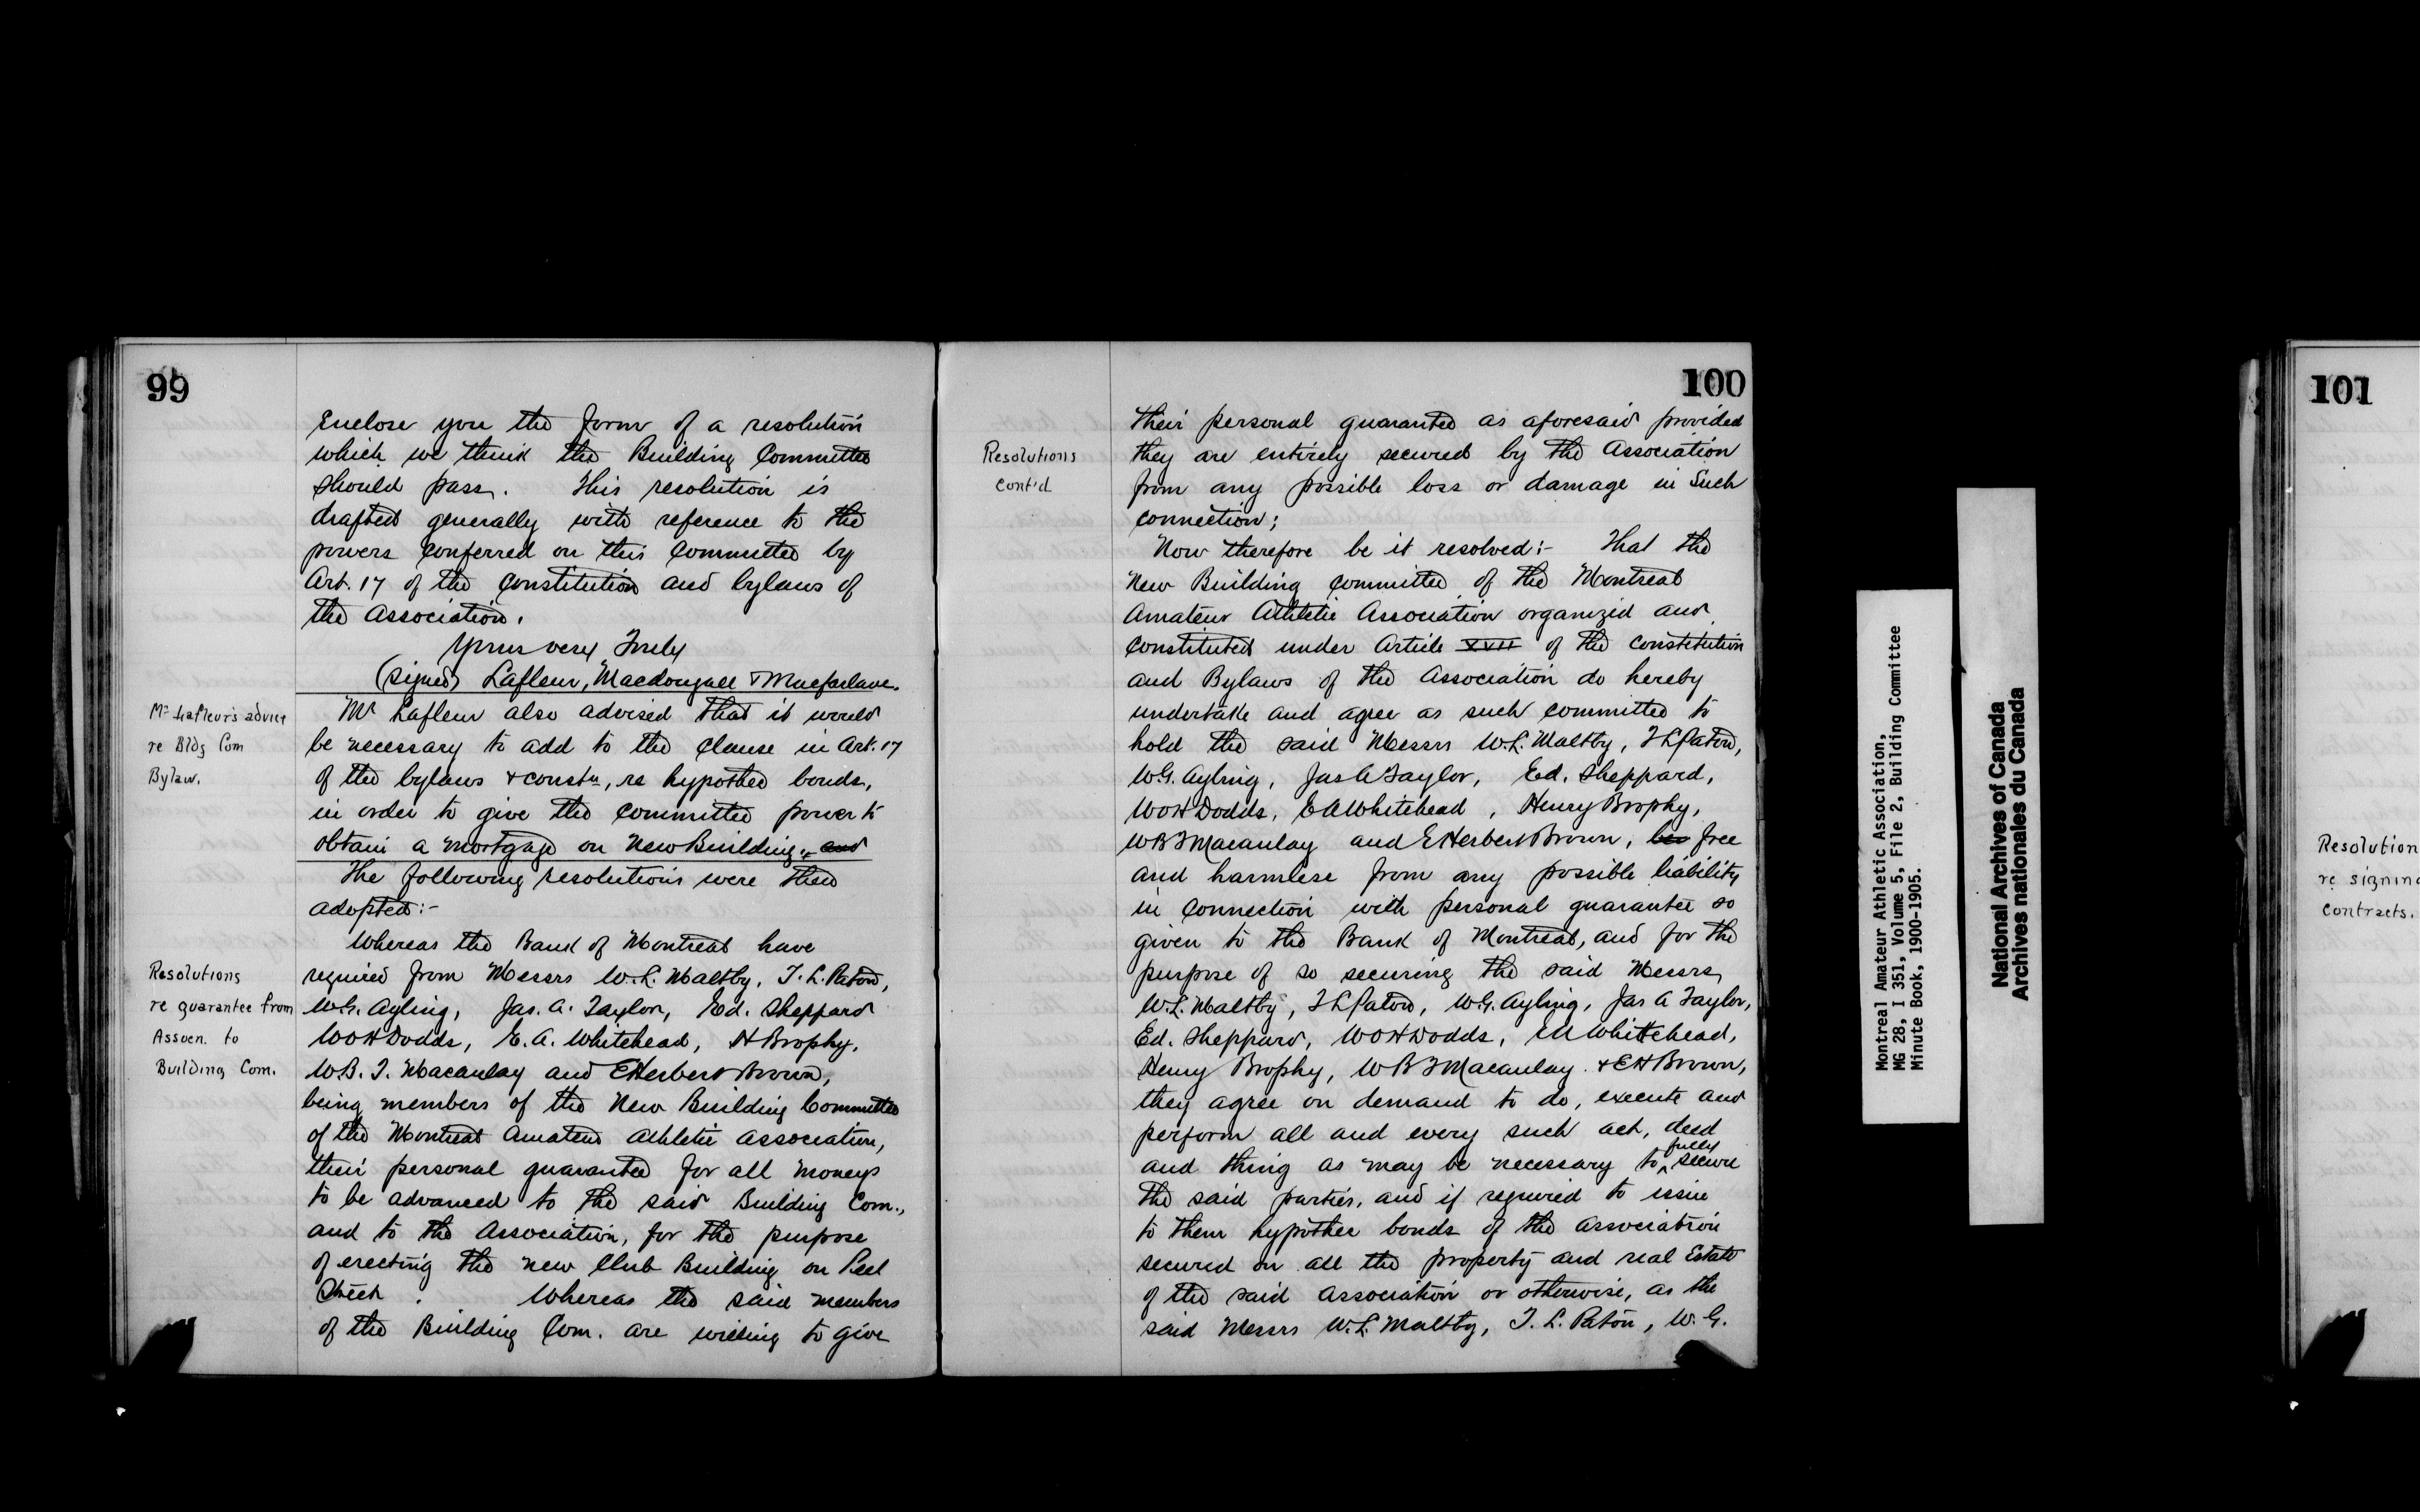 99
Enclose you the form of a resolution
which we think the Building Committee
should pass. This resolution is
drafted generally with reference to the
powers conferred on this Committee by
Art. 17 of the Constitution and bylaws of
the Association.
Yours very Truly
(signed) Lafleur, Macdougall & Macfarlane.
Mr Lafleur's advice
re Bldg Com
Bylaw.
Mr Lafleur also advised that it would
be necessary to add to the clause in Art. 17
of the bylaws & constn, re hypothec bonds,
in order to give the Committee power to
obtain a mortgage on New Building. and
The following resolutions were then
adopted:-
Resolutions
re guarantee from
Assocn. to
Building Com.
Whereas the Bank of Montreal have
required from Messrs W.L. Maltby, T.L. Paton,
W.G. Ayling, Jas. A. Taylor, Ed. Sheppard
W O H Dodds, E.A. Whitehead, H Brophy,
W.B.T. Macaulay and E Herbert Brown,
being members of the New Building Committee
of the Montreal Amateur Athletic Association,
their personal guarantee for all moneys
to be advanced to the said Building Com.,
and to the Association, for the purpose
of erecting the new Club Building on Peel
Street. Whereas the said members
of the Building Com. are willing to give
100
Resolutions
Cont'd
their personal guarantee as aforesaid provided
they are entirely secured by the Association
from any possible loss or damage in such
connection;
Now therefore be it resolved:- That the
New Building Committee of the Montreal
Amateur Athletic Association organized and
constituted under Article XVII of the Constitution
and Bylaws of the Association do hereby
undertake and agree as such committee to
hold the said Messrs W.L. Maltby, T L Paton,
W.G. Ayling, Jas A Taylor, Ed. Sheppard,
W O H Dodds, E A Whitehead, Henry Brophy,
W B T Macaulay and E Herbert Brown, free
and harmless from any possible liability
in connection with personal guarantee so
given to the Bank of Montreal, and for the
purpose of so securing the said Messrs
W.L. Maltby, T L Paton, W.G. Ayling, Jas A Taylor,
Ed. Sheppard, W O H Dodds, E A Whitehead,
Henry Brophy, W B T Macaulay & E H Brown,
they agree on demand to do, execute and
perform all and every such act, deed
and thing as may be necessary to fully secure
the said parties, and if required to issue
to them hypothec bonds of the Association
secured on all the property and real Estate
of the said Association or otherwise, as the
said Messrs W.L. Maltby, T.L. Paton, W.G.
Montreal Amateur Athletic Association,
MG 28, I 351, Volume 5, File 2, Building Committee
Minute Book, 1900-1905.
National Archives of Canada
Archives nationales du Canada
101
Resolution
re signing
contracts.